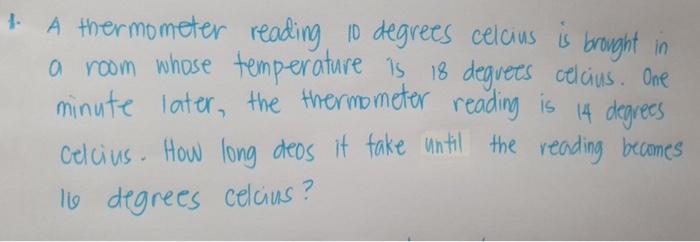 1. A thermometer reading 10 degrees celcius is brought in
a room whose temperature is 18 degrees celcius. One
minute later, the thermometer reading is 14 degrees
celcius. How long deos it take until the reading becomes
16 degrees celcius?